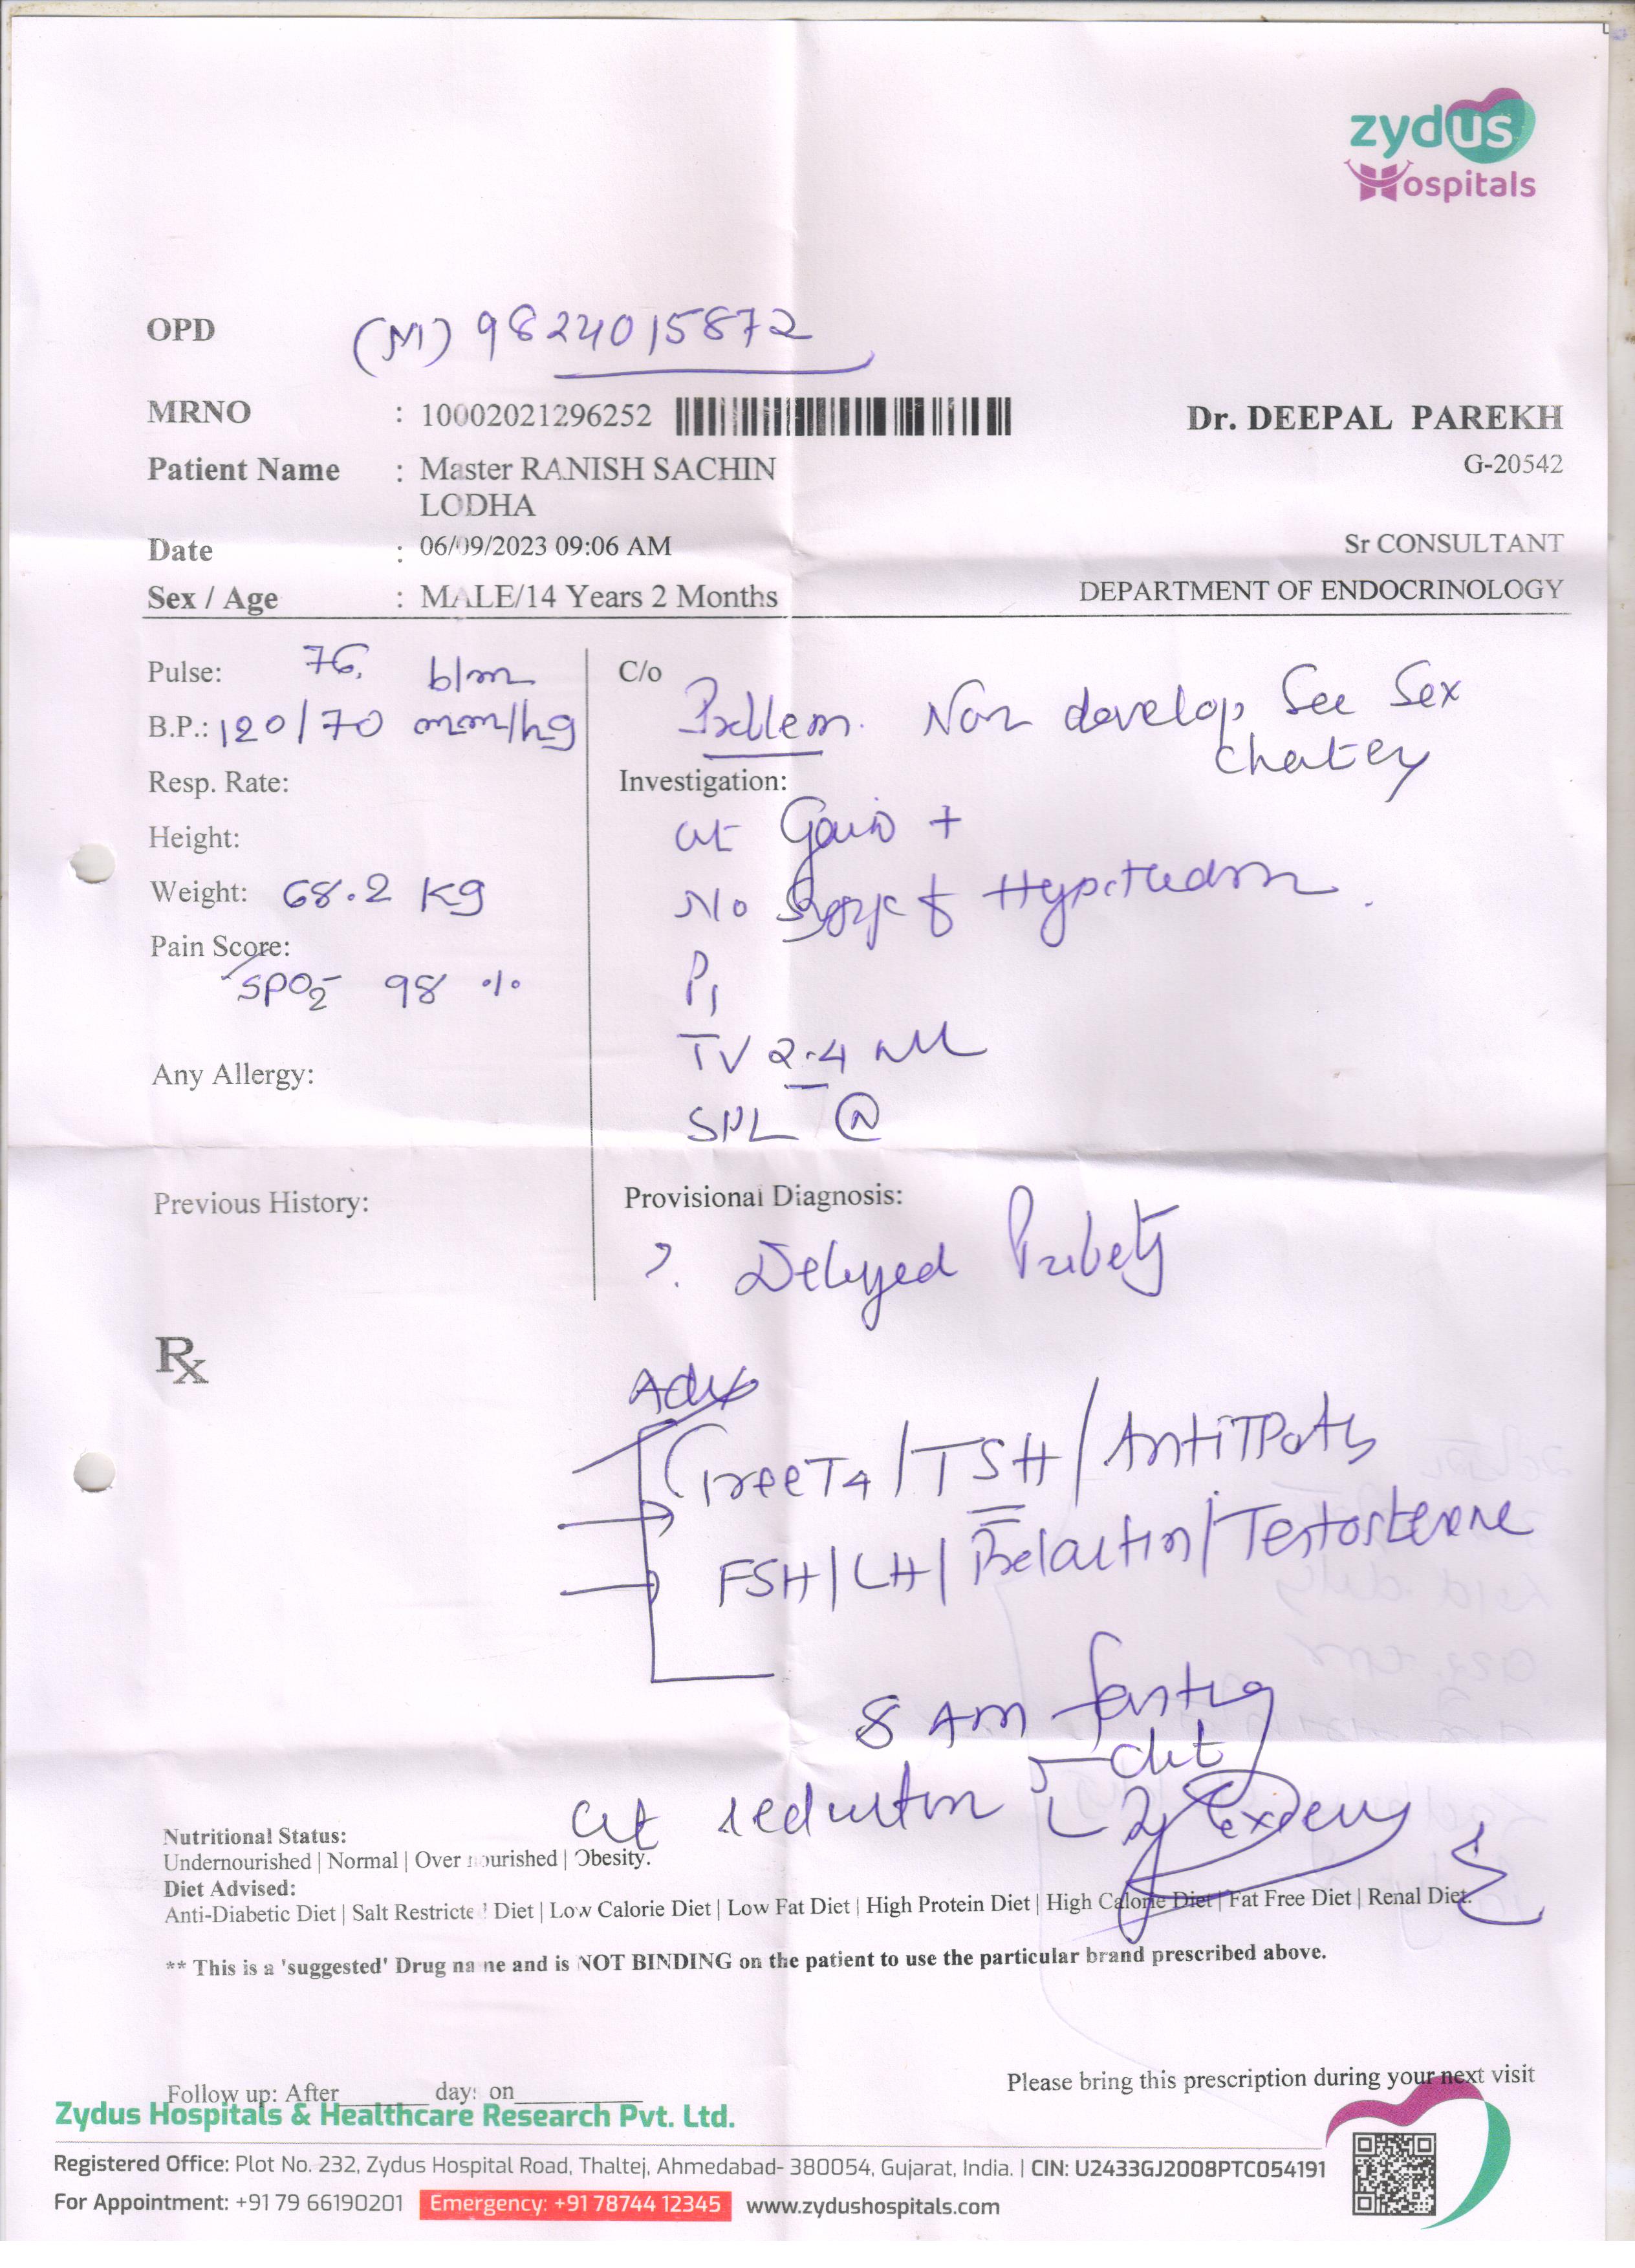 zydus
Hospitals
OPD (M) 9824015872
MRNO : 10002021296252
Dr. DEEPAL PAREKH
Patient Name : Master RANISH SACHIN
LODHA
G-20542
Date : 06/09/2023 09:06 AM
Sr CONSULTANT
Sex / Age : MALE/14 Years 2 Months
DEPARTMENT OF ENDOCRINOLOGY
Pulse: 76. b/m
B.P.: 120/70 mm/hg
Resp. Rate:
Height:
Weight: 68.2 Kg
Pain Score:
SPO2 98 %
Any Allergy:
Previous History:
C/o
Non develop See Sex
Investigation:
wt Gain +
No of
P1
TV 2-4 ml
SPL N
Provisional Diagnosis:
?. Delayed Puberty
Rx
Adv
Free T4 / TSH / AntiTPOAb
FSH / LH / Prolactin / Testosterone
8 AM fasting
diet
wt reduction
Nutritional Status:
Undernourished | Normal | Over nourished | Obesity.
Diet Advised:
Anti-Diabetic Diet | Salt Restricted Diet | Low Calorie Diet | Low Fat Diet | High Protein Diet | High Calorie Diet | Fat Free Diet | Renal Diet.
** This is a 'suggested' Drug name and is NOT BINDING on the patient to use the particular brand prescribed above.
Please bring this prescription during your next visit
Follow up: After_______ days on__________
Zydus Hospitals & Healthcare Research Pvt. Ltd.
Registered Office: Plot No. 232, Zydus Hospital Road, Thaltej, Ahmedabad- 380054, Gujarat, India. | CIN: U2433GJ2008PTC054191
For Appointment: +91 79 66190201 Emergency: +91 78744 12345 www.zydushospitals.com